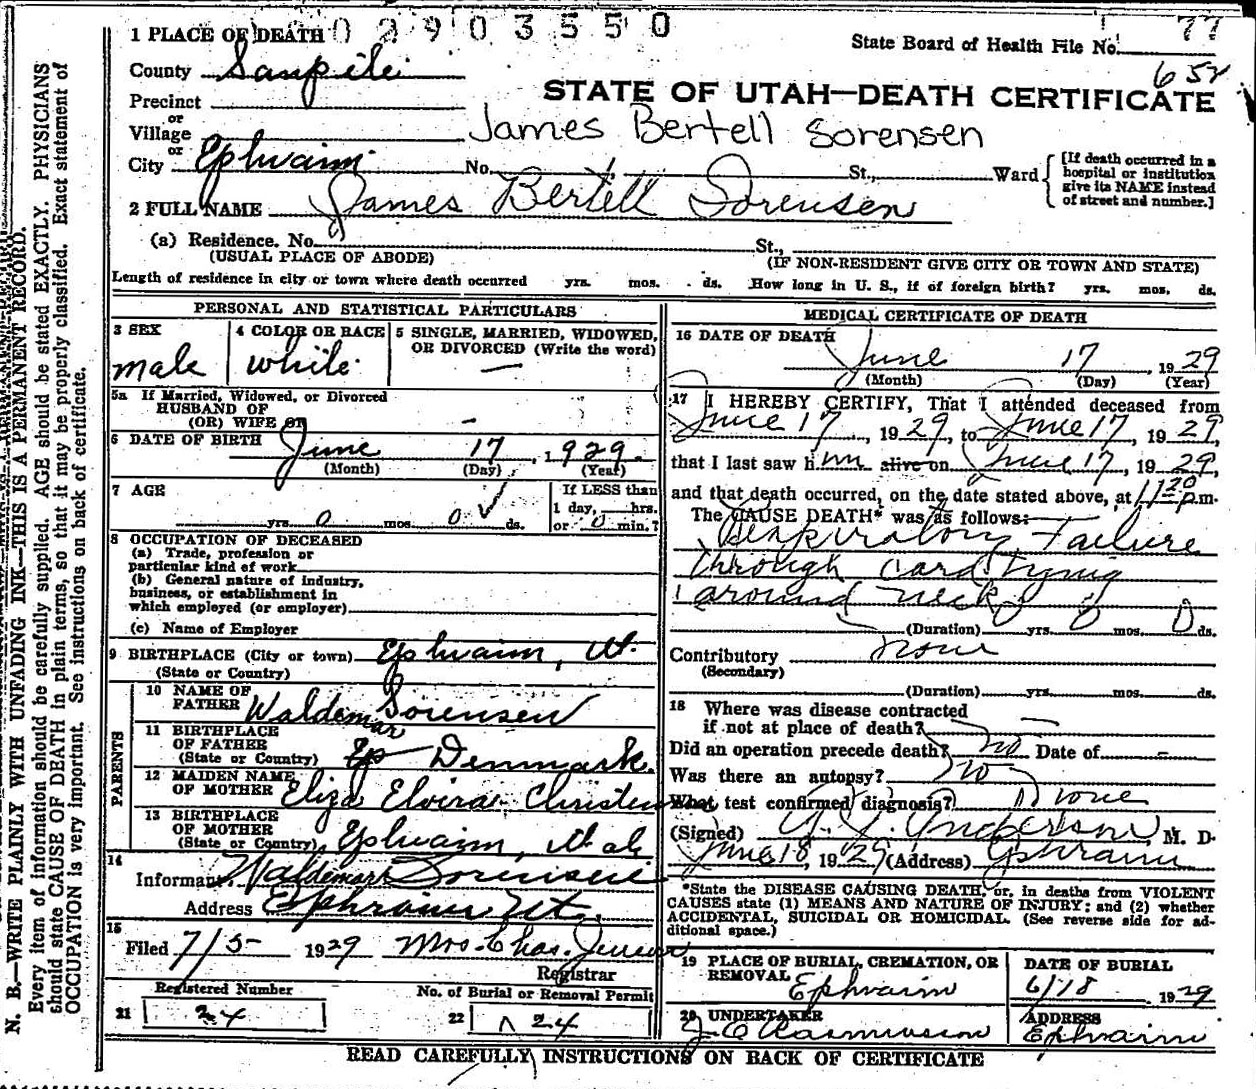 1 PLACE OF DEATH 0 2 9 0 3 5 5 0
State Board of Health File No. 77
County Sanpete
652
STATE OF UTAH—DEATH CERTIFICATE
Precinct
or
Village
James Bertell Sorensen
or
City Ephraim No. St., Ward
[If death occurred in a hospital or institution give its NAME instead of street and number.]
2 FULL NAME James Bertell Sorensen
(a) Residence. No. St.,
(USUAL PLACE OF ABODE) (IF NON-RESIDENT GIVE CITY OR TOWN AND STATE)
Length of residence in city or town where death occurred yrs. mos. ds. How long in U. S., if of foreign birth? yrs. mos. ds.
PERSONAL AND STATISTICAL PARTICULARS
3 SEX
male
4 COLOR OR RACE
white
5 SINGLE, MARRIED, WIDOWED,
OR DIVORCED (Write the word)
—
5a If Married, Widowed, or Divorced
HUSBAND OF
(OR) WIFE OF -
6 DATE OF BIRTH June 17, 1929.
(Month) (Day) (Year)
7 AGE
yrs. 0 mos. 0 ds.
If LESS than
1 day, hrs.
or 0 min.?
8 OCCUPATION OF DECEASED
(a) Trade, profession or
particular kind of work
(b) General nature of industry,
business, or establishment in
which employed (or employer)
(c) Name of Employer
9 BIRTHPLACE (City or town) Ephraim, Ut.
(State or Country)
PARENTS
10 NAME OF
FATHER Waldemar Sorensen
11 BIRTHPLACE
OF FATHER
(State or Country) Ep Denmark.
12 MAIDEN NAME
OF MOTHER Eliza Elvira Christensen
13 BIRTHPLACE
OF MOTHER
(State or Country) Ephraim, Utah
14
Informant Waldemar Sorensen
Address Ephraim Ut.
15
Filed 7/5- 1929 Mrs. Chas. Jensen
Registrar
Registered Number
21 24
No. of Burial or Removal Permit
22 24
MEDICAL CERTIFICATE OF DEATH
16 DATE OF DEATH
June 17, 1929
(Month) (Day) (Year)
17 I HEREBY CERTIFY, That I attended deceased from
June 17, 1929, to June 17, 1929,
that I last saw him alive on June 17, 1929,
and that death occurred, on the date stated above, at 11 20 p.m.
The CAUSE DEATH* was as follows:
Respiratory Failure
through cord tying
around neck
(Duration) yrs. 0 mos. 0 ds.
Contributory none
(Secondary)
(Duration) yrs. mos. ds.
18 Where was disease contracted
if not at place of death? —
Did an operation precede death? no Date of -
Was there an autopsy? no
What test confirmed diagnosis? None
(Signed) Anderson, M. D.
June 18, 1929 (Address) Ephraim
*State the DISEASE CAUSING DEATH, or, in deaths from VIOLENT
CAUSES state (1) MEANS AND NATURE OF INJURY; and (2) whether
ACCIDENTAL, SUICIDAL OR HOMICIDAL. (See reverse side for ad-
ditional space.)
19 PLACE OF BURIAL, CREMATION, OR
REMOVAL Ephraim
DATE OF BURIAL
6/18 1929
20 UNDERTAKER
J. C. Rasmussen
ADDRESS
Ephraim
READ CAREFULLY INSTRUCTIONS ON BACK OF CERTIFICATE
N. B.—WRITE PLAINLY WITH UNFADING INK—THIS IS A PERMANENT RECORD.
Every item of information should be carefully supplied. AGE should be stated EXACTLY. PHYSICIANS
should state CAUSE OF DEATH in plain terms, so that it may be properly classified. Exact statement of
OCCUPATION is very important. See instructions on back of certificate.